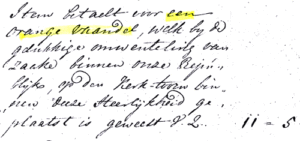 Item betaelt voor een
orange vaandel, welk bij de
gelukkige omwenteling van
zaake binnen onze Repu
blijk, op den Kerk-toorn bin„
nen deeze Heerlijkheid ge„
plaatst is geweest 11 = 5